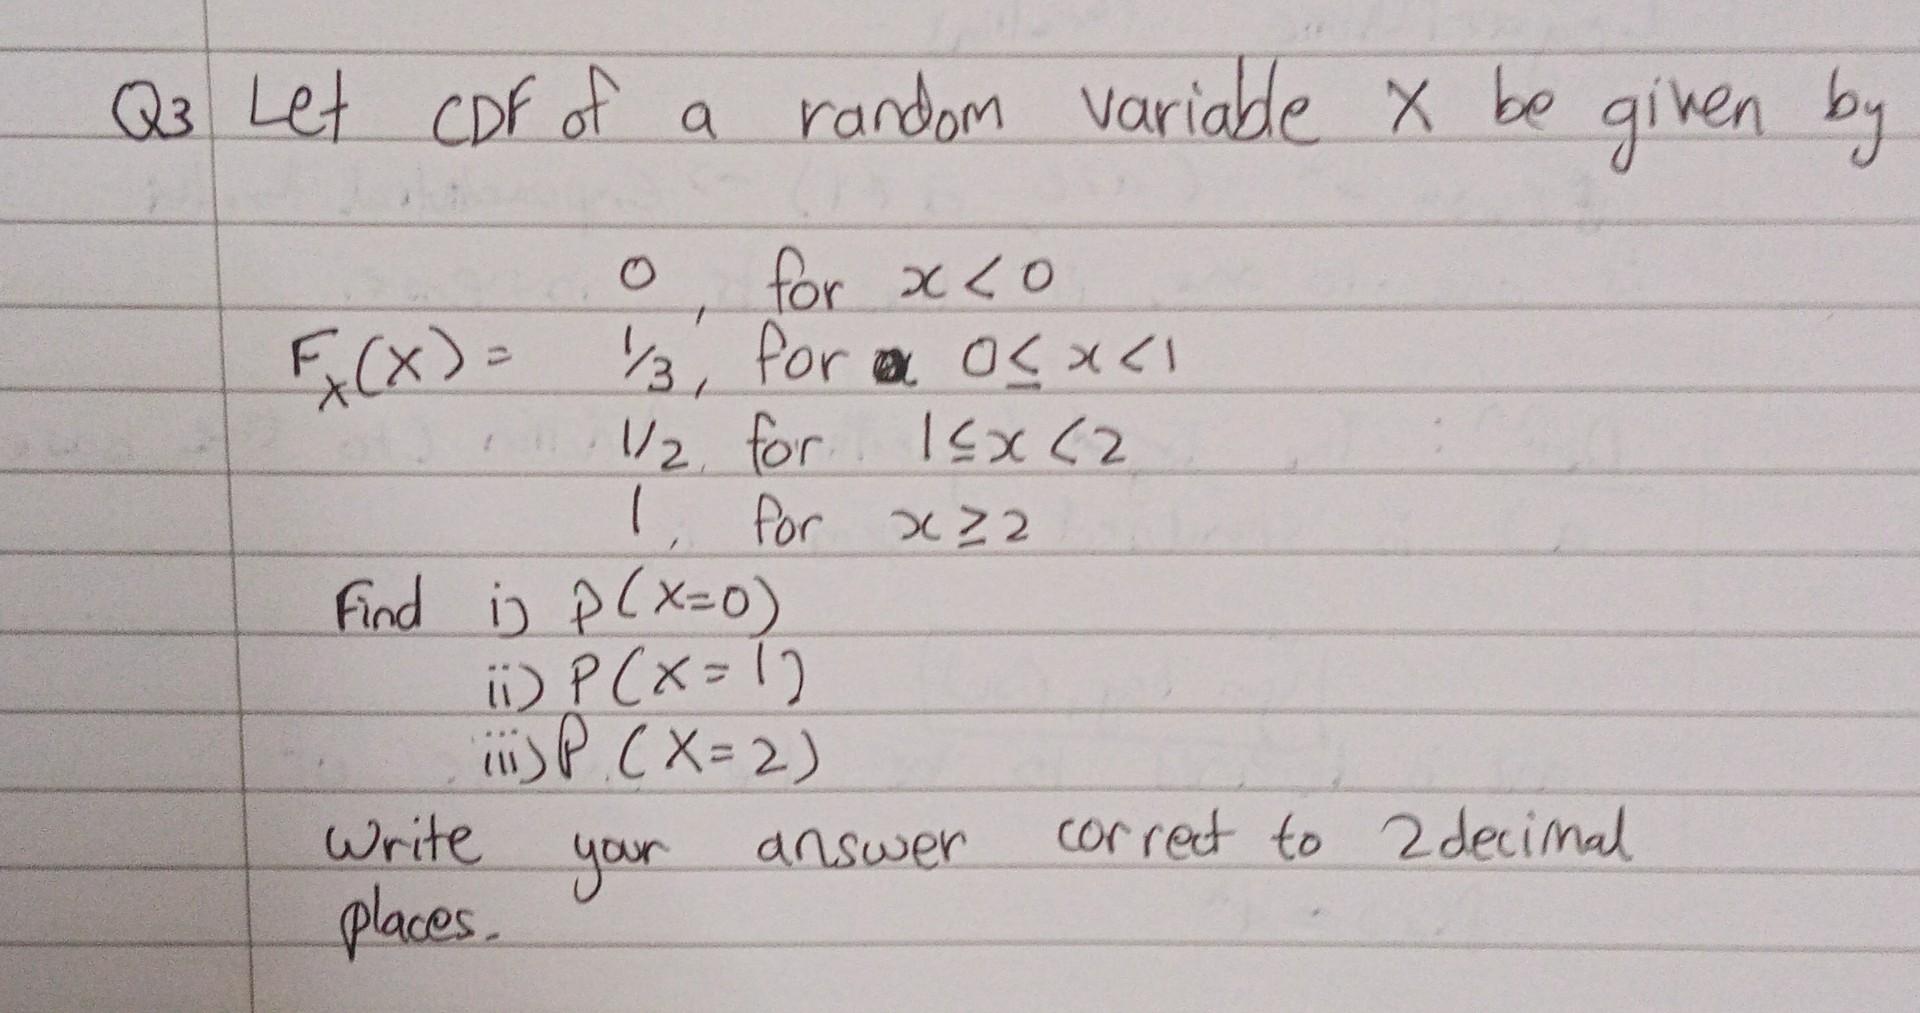 Q3 Let CDF of a random variable X be given by
0, for x<0
F_X(X) = 1/3, for 0≤x<1
1/2, for 1≤x<2
1, for x≥2
Find i) P(X=0)
ii) P(X=1)
iii) P.(X=2)
Write your answer correct to 2 decimal
places.